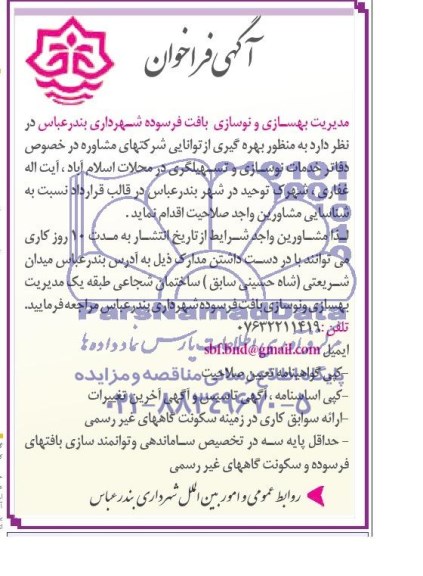 آگهی فراخوان
مدیریت بهسازی و نوسازی بافت فرسوده شهرداری بندرعباس در
نظر دارد به منظور بهره گیری از توانایی شرکتهای مشاوره در خصوص
دفاتر خدمات نوسازی و تسهیلگری در محلات اسلام آباد ، آیت اله
غفاری ، شهرک توحید در شهر بندرعباس در قالب قرارداد نسبت به
شناسایی مشاورین واجد صلاحیت اقدام نماید .
لذا مشاورین واجد شرایط از تاریخ انتشار به مدت ۱۰ روز کاری
می توانند با در دست داشتن مدارک ذیل به آدرس بندرعباس میدان
شریعتی (شاه حسینی سابق ) ساختمان شجاعی طبقه یک مدیریت
بهسازی ونوسازی بافت فرسوده شهرداری بندرعباس مراجعه فرمایید.
تلفن :۰۷۶۳۲۲۱۱۴۱۹
ParsNamadData
مرکز فرآوری اطلاعات پارس نماد داده ها
ایمیل sbf.bnd@gmail.com
-کپی گواهینامه تعیین صلاحیت
پایگاه اطلاع رسانی مناقصه و مزایده
-کپی اساسنامه ، آگهی تاسیس و آگهی آخرین تغییرات
۰۲۱-۸۸۳۴۹۶۷۰-۵
-ارائه سوابق کاری در زمینه سکونت گاههای غیر رسمی
- حداقل پایه سه در تخصیص ساماندهی وتوانمند سازی بافتهای
فرسوده و سکونت گاههای غیر رسمی
روابط عمومی و امور بین الملل شهرداری بندرعباس